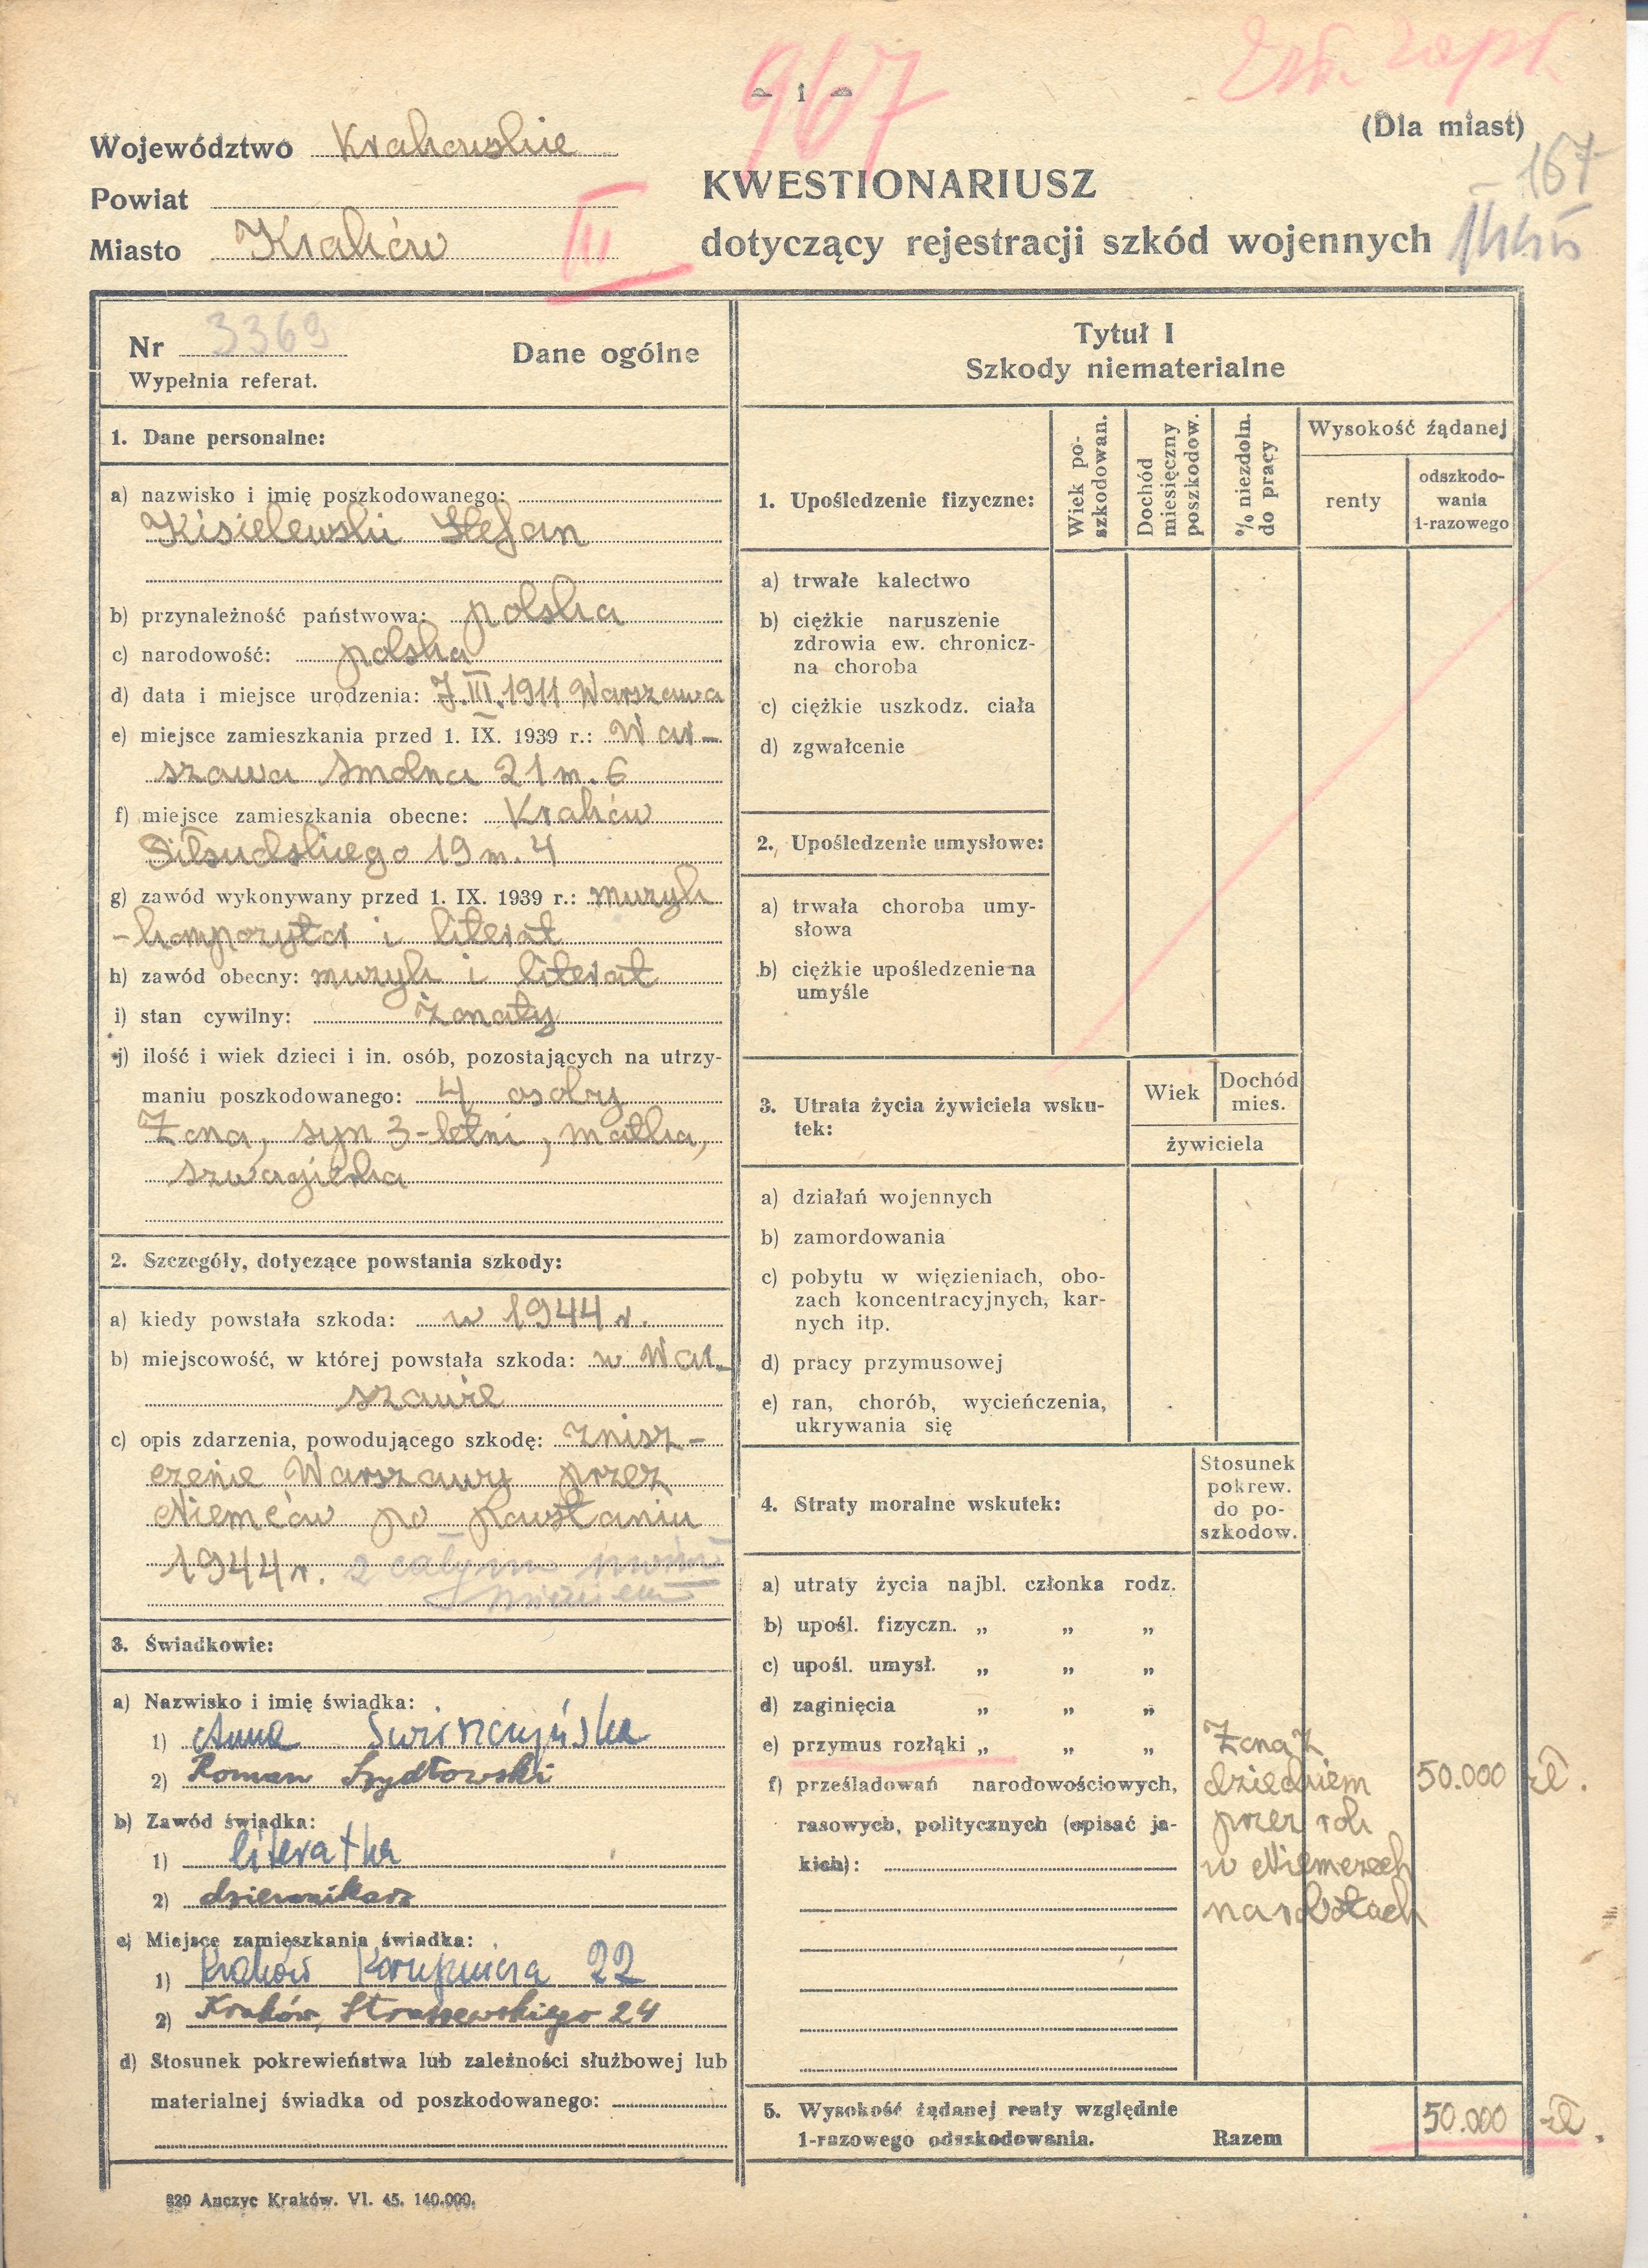 967
— 1 —
(Dla miast)
Województwo Krakowskie
Powiat
Miasto Kraków
III
167
KWESTIONARIUSZ
dotyczący rejestracji szkód wojennych
Nr 3369
Wypełnia referat.
Dane ogólne
1. Dane personalne:
a) nazwisko i imię poszkodowanego:
Kisielewski Stefan
b) przynależność państwowa: polska
c) narodowość: polska
d) data i miejsce urodzenia: 7.III.1911 Warszawa
e) miejsce zamieszkania przed 1. IX. 1939 r.: War-
szawa Smolna 21 m. 6
f) miejsce zamieszkania obecne: Kraków
Piłsudskiego 19 m. 4
g) zawód wykonywany przed 1. IX. 1939 r.: muzyk
-kompozytor i literat
h) zawód obecny: muzyk i literat
i) stan cywilny: żonaty
j) ilość i wiek dzieci i in. osób, pozostających na utrzy-
maniu poszkodowanego: 4 osoby
Żona, syn 3-letni, matka,
szwagierka
2. Szczegóły, dotyczące powstania szkody:
a) kiedy powstała szkoda: w 1944 r.
b) miejscowość, w której powstała szkoda: w War-
szawie
c) opis zdarzenia, powodującego szkodę: znisz-
czenie Warszawy przez
Niemców po powstaniu
1944 r. z całym moim
mieniem
3. Świadkowie:
a) Nazwisko i imię świadka:
1) Anna Świrszczyńska
2) Roman Szydłowski
b) Zawód świadka:
1) literatka
2) dziennikarz
c) Miejsce zamieszkania świadka:
1) Kraków Krupnicza 22
2) Kraków, Straszewskiego 24
d) Stosunek pokrewieństwa lub zależności służbowej lub
materialnej świadka od poszkodowanego:
820 Anczyc Kraków. VI. 45. 140.000.
Tytuł I
Szkody niematerialne
1. Upośledzenie fizyczne:
Wiek po-
szkodowan.
Dochód
miesięczny
poszkodow.
% niezdoln.
do pracy
Wysokość źądanej
renty
odszkodo-
wania
1-razowego
a) trwałe kalectwo
b) ciężkie naruszenie
zdrowia ew. chronicz-
na choroba
c) ciężkie uszkodz. ciała
d) zgwałcenie
2. Upośledzenie umysłowe:
a) trwała choroba umy-
słowa
b) ciężkie upośledzenie na
umyśle
3. Utrata życia żywiciela wsku-
tek:
Wiek
Dochód
mies.
żywiciela
a) działań wojennych
b) zamordowania
c) pobytu w więzieniach, obo-
zach koncentracyjnych, kar-
nych itp.
d) pracy przymusowej
e) ran, chorób, wycieńczenia,
ukrywania się
4. Straty moralne wskutek:
Stosunek
pokrew.
do po-
szkodow.
a) utraty życia najbl. członka rodz.
b) upośl. fizyczn. „ „ „
c) upośl. umysł. „ „ „
d) zaginięcia „ „ „
e) przymus rozłąki „ „ „
f) prześladowań narodowościowych,
rasowych, politycznych (opisać ja-
kich):
Żona z
dzieckiem
przez rok
w Niemczech
na robotach
50.000 zł.
5. Wysokość żądanej renty względnie
1-razowego odszkodowania.
Razem
50.000 zł.